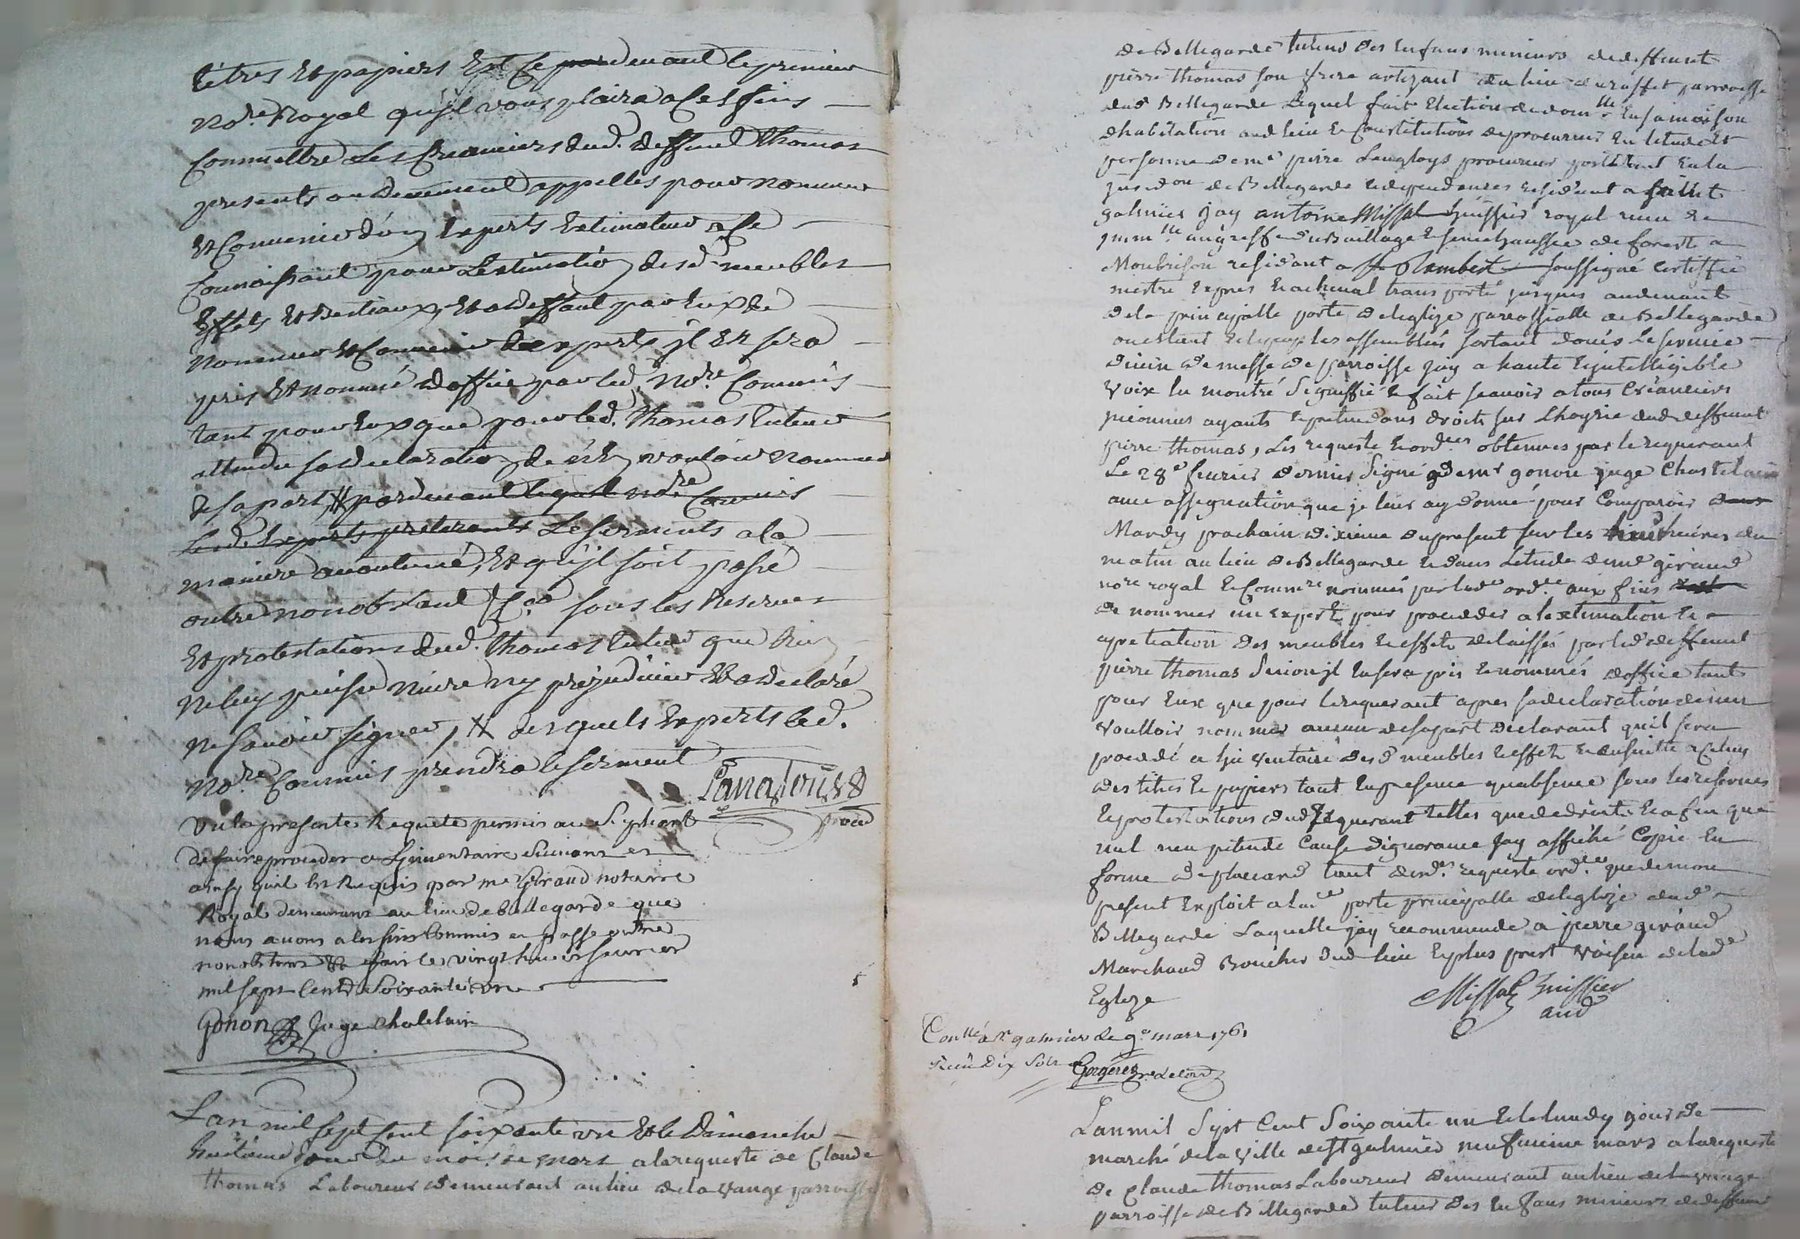 titres et papiers et ce pardevant le premier
no.re Royal qu'jl vous plaira a ces fins
Commettre Les Creanciers dud. deffunt Thomas
presents ou deuement appellés pour nommer
et Convenir d'un Experts Estimateur a ce
Connoissant pour L'estimation desd. meubles
Effets et Bestiaux, et a deffaut par eux de
nommer et Convenir des experts jl en sera
pris et nommé d'office par led. no.re Commis
tant pour eux que pour led. Thomas tuteur
attendu sa declaration de n'en vouloir nommer
de sa part, # pardevant lequel no.re Commis
lesd. experts preteront Le serment a la
maniere accoutumé, et qu'jl soit passé
outre nonobstant &ca sous les Reserves
et protestations dud. Thomas tuteur que Rien
ne luy puisse nuire ny prejudicier et a declaré
ne scavoir signer, # desquels experts led.
no.re Commis prendra le serment
proc.
Vu la presente Requete permis au supliant
de faire proceder a L'jnventaire
ainsy qu'il est Requis par me Giraud notaire
Royal demeurant au lieu de bellegarde que
nous avons a ces fins Commis et passé outre
nonobstant &c fait le vingt huit fevrier
mil sept Cent Soixante une
Gonon Juge Chatelain
L'an mil sept Cent soixante un et le Dimanche
huitieme jour du mois de mars a la requeste de Claude
Thomas Laboureur demeurant au lieu de la vange parroisse
de Bellegarde tuteur des Enfans mineurs de deffunt
pierre Thomas son frere artizant du lieu de parroisse
dud Bellegarde Lequel fait Election de dom.lle En sa maison
d'habitation aud lieu & Constitution de procureur En l'etude et
personne de me pierre Langloys procureur postulant En la
jurisd.on de Bellegarde & dependances residant a saint
galmier jay antoine Missal huissier royal reçu &
jmm.lle au greffe du Baillage & senechaussée de forest a
Montbrison residant a St Rambert soussigné Certiffie
m'estre Expres & a cheval transporté jusques audevant
de la principalle porte de l'eglize parroissialle de Bellegarde
ou estant & le peuple assemblés sortant d'ouir Le service
divin de messe de parroisse jay a haute & jntelligible
voix lu montré signiffié & fait scavoir a tous Creanciers
jnconnus ayants & pretendans droits sur L'hoyrie dud deffunt
pierre Thomas, Les requeste & ord.ces obtenues par le requerant
Le 28e fevrier dernier signé de mr gonon juge Chastelain
avec assignation que je leur ay donné pour Comparoir
Mardy prochain dixieme du present sur les huit heures du
matin au lieu de Bellegarde & dans L'etude de me giraud
no.re royal & Comm.re nommé par lad.e ord.ce aux fins
de nommer un expert pour proceder a l'extimation &
apretiation des meubles & effets delaissés par led deffunt
pierre Thomas sinon jl en sera pris & nommés d'office tant
pour Eux que pour le requerant apres sa declaration de n'en
voulloir nommer aucun de sa part declarant qu'il sera
procedé a l'inventaire desd meubles & effets & ensuitte a Celuy
des titres & papiers tout En presence qu'absence sous les reserves
& protestations dud requerant telles que de droit & afin que
nul n'en pretende Cause d'ignorance jay affiché Copie En
forme de placard tant desd. requeste ord.ces que de mon
present Exploit a lad.e porte principalle de l'eglize dud
Bellegarde Laquelle jay recommandé a pierre giraud
Marchand Boucher dud lieu & plus proche voisin de lad.e
Eglize
Missal huissier
aud
Con.llé a St galmier Le 9e mars 1761
Receu Dix sols
L'an mil sept Cent soixante un & le lundy jour de
marché de la ville de St galmier neufvieme mars a la requeste
de Claude Thomas Laboureur demeurant au lieu de la vange
parroisse de Bellegarde tuteur des Enfans mineurs de deffunt